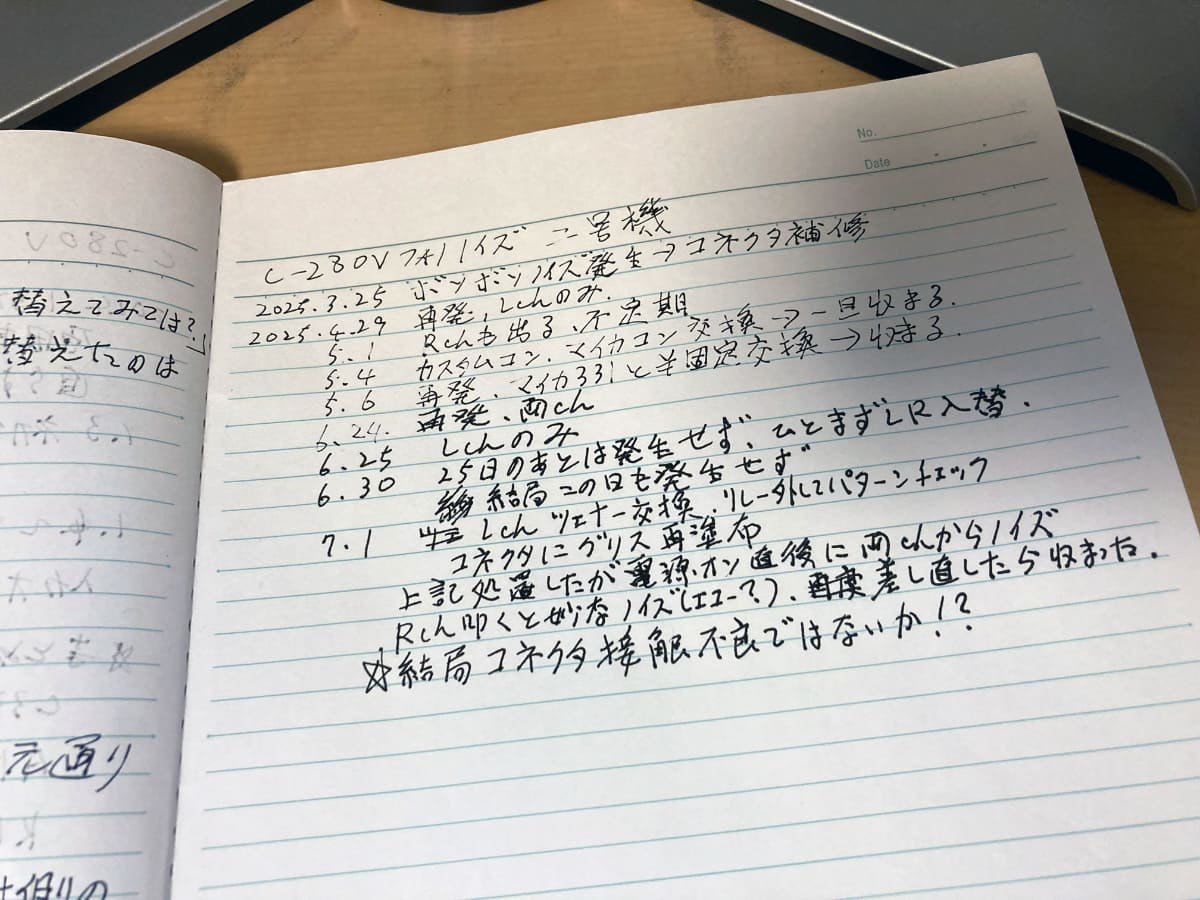 替えてみては?」
替えたのは
元通り
側の
No.
Date
C-280V フォノノイズ 二号機
2025.3.25 ボンボンノイズ発生→コネクタ補修
2025.4.29 再発、Lchのみ.
5.1 Rchも出る、不定期
5.4 カスタムコン、マイカコン交換→一旦収まる.
5.6 再発、マイカ331と半固定交換→収まる.
6.24. 再発、両ch
6.25 Lchのみ
6.30 25日のあとは発生せず、ひとまずLR入替.
結局この日も発生せず
7.1 Lchツェナー交換、リレー外してパターンチェック
コネクタにグリス再塗布
上記処置したが電源オン直後に両chからノイズ
Rch叩くと妙なノイズ(エコー?)、再度差し直したら収まった.
☆結局コネクタ接触不良ではないか!?